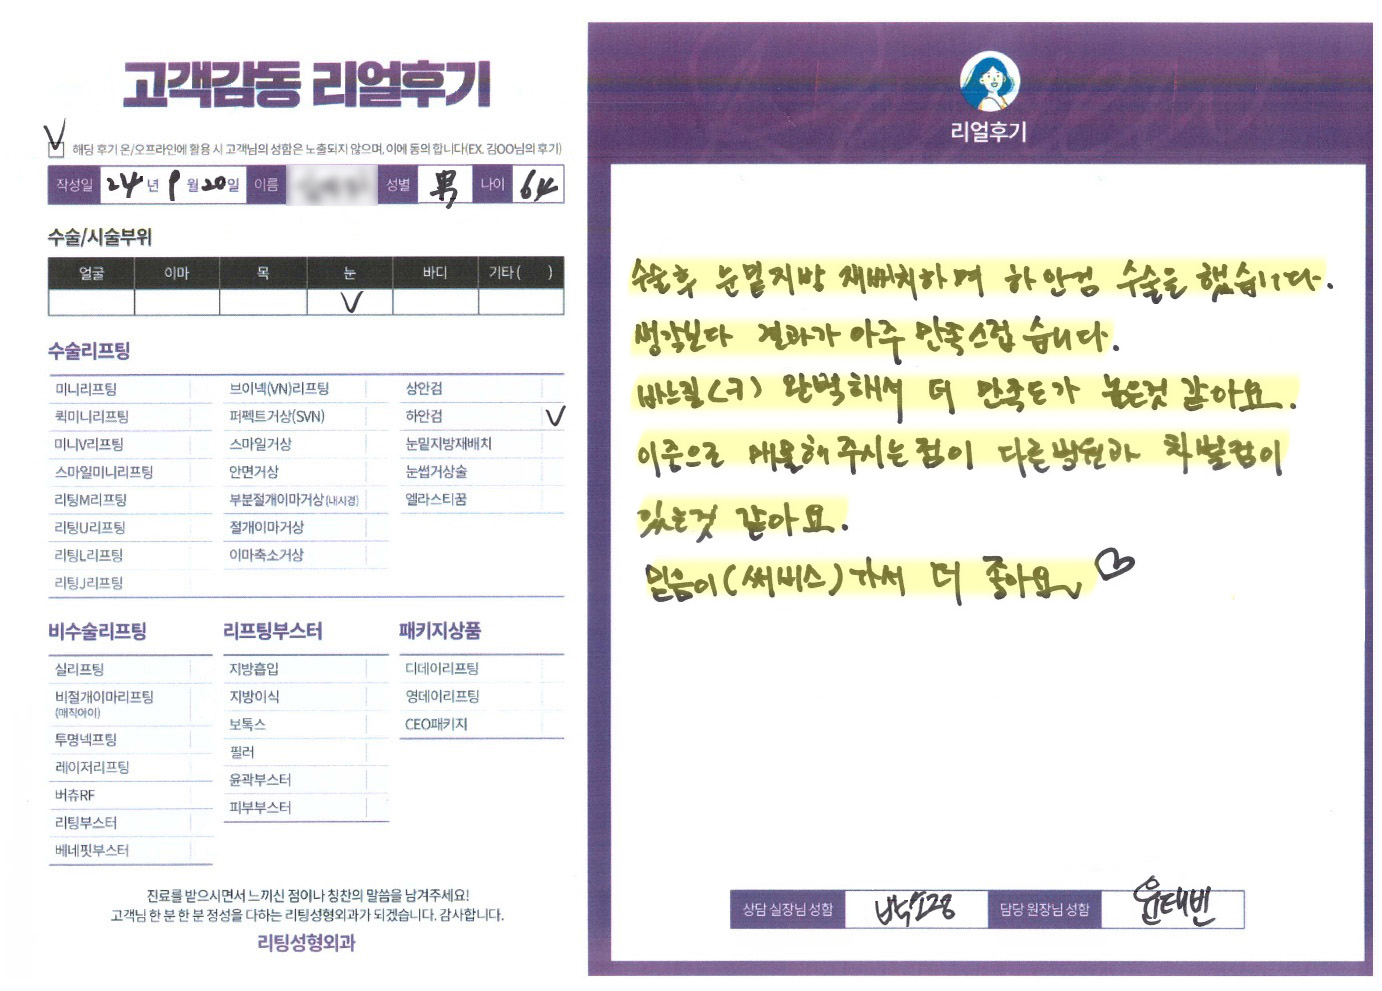 고객감동 리얼후기
V 해당 후기 온/오프라인에 활용 시 고객님의 성함은 노출되지 않으며, 이에 동의 합니다(EX. 김OO님의 후기)
작성일 24년 9월 20일 이름 성별 男 나이 64
수술/시술부위
얼굴 이마 목 눈 바디 기타 ( )
V
수술리프팅
미니리프팅 브이넥(VN)리프팅 상안검
퀵미니리프팅 퍼펙트거상(SVN) 하안검 V
미니V리프팅 스마일거상 눈밑지방재배치
스마일미니리프팅 안면거상 눈썹거상술
리팅M리프팅 부분절개이마거상(내시경) 엘라스티꿈
리팅U리프팅 절개이마거상
리팅L리프팅 이마축소거상
리팅J리프팅
비수술리프팅 리프팅부스터 패키지상품
실리프팅 지방흡입 디데이리프팅
비절개이마리프팅 지방이식 영데이리프팅
(매직아이) 보톡스 CEO패키지
투명넥프팅 필러
레이저리프팅 윤곽부스터
버츄RF 피부부스터
리팅부스터
베네핏부스터
진료를 받으시면서 느끼신 점이나 칭찬의 말씀을 남겨주세요!
고객님 한 분 한 분 정성을 다하는 리팅성형외과가 되겠습니다. 감사합니다.
리팅성형외과
리얼후기
수술후 눈밑지방 재배치하며 하안검 수술을 했습니다.
생각보다 결과가 아주 만족스럽습니다.
바느질( ) 완벽해서 더 만족도가 높은것 같아요.
이중으로 매몰해주시는점이 다른병원과 차별점이
있는것 같아요.
믿음이(써비스)가서 더 좋아요 ♡
상담 실장님 성함 담당 원장님 성함 윤태빈